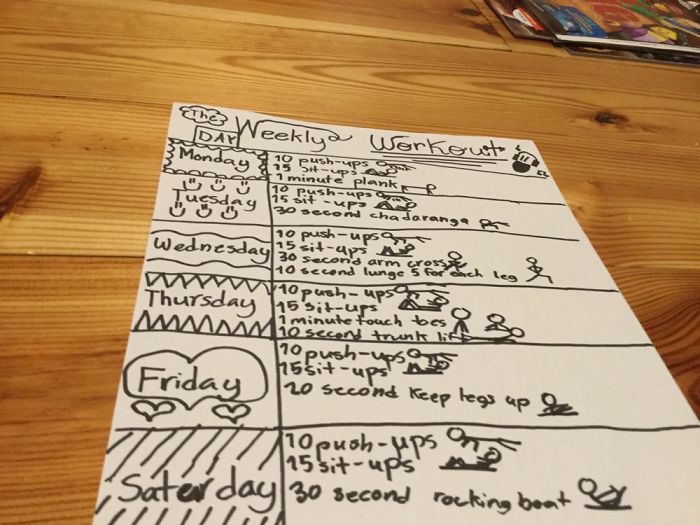 The
DAY
Weekly Workout
Monday
10 push-ups
15 sit-ups
1 minute plank
Tuesday
10 push-ups
15 sit-ups
30 second chadaranga
Wednesday
10 push-ups
15 sit-ups
30 second arm cross
10 second lunge 5 for each leg
Thursday
10 push-ups
15 sit-ups
1 minute touch toes
10 second trunk lift
Friday
10 push-ups
15 sit-ups
20 second keep legs up
Saterday
10 push-ups
15 sit-ups
30 second rocking boat